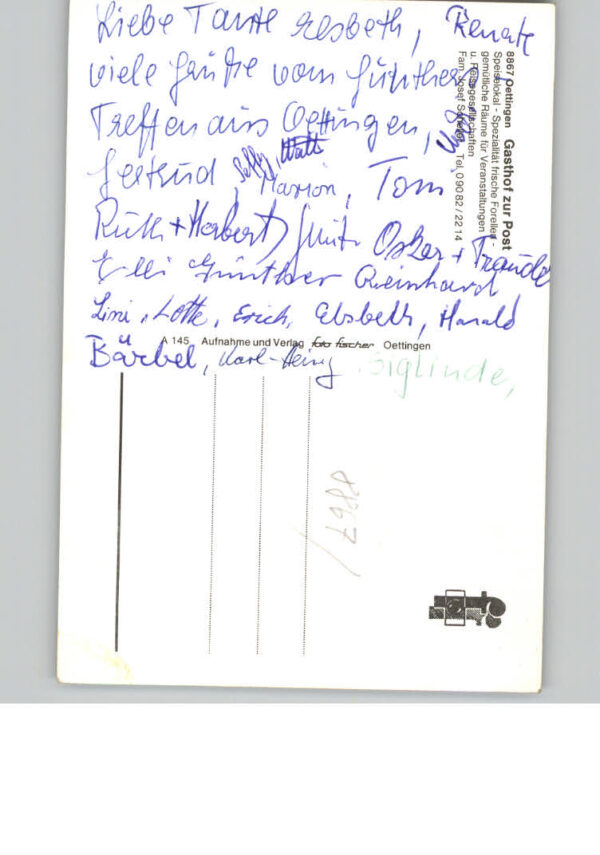 Liebe Tante Elsbeth, Renate
viele Grüße vom Günther
Treffen aus Oettingen,
Gertrud, Marion, Tom
Ruth + Herbert, Oskar + Traudl
Elli Günther Reinhard
Lini, Lotte, Erich, Elsbeth, Harald
Bärbel, Karl-Heinz Siglinde,
8867 Oettingen Gasthof zur Post
Speiselokal - Spezialität frische Forellen -
gemütliche Räume für Veranstaltungen
u. Reisegesellschaften
Fam. Josef Tel. 09082/2214
A 145 Aufnahme und Verlag foto fischer Oettingen
8867